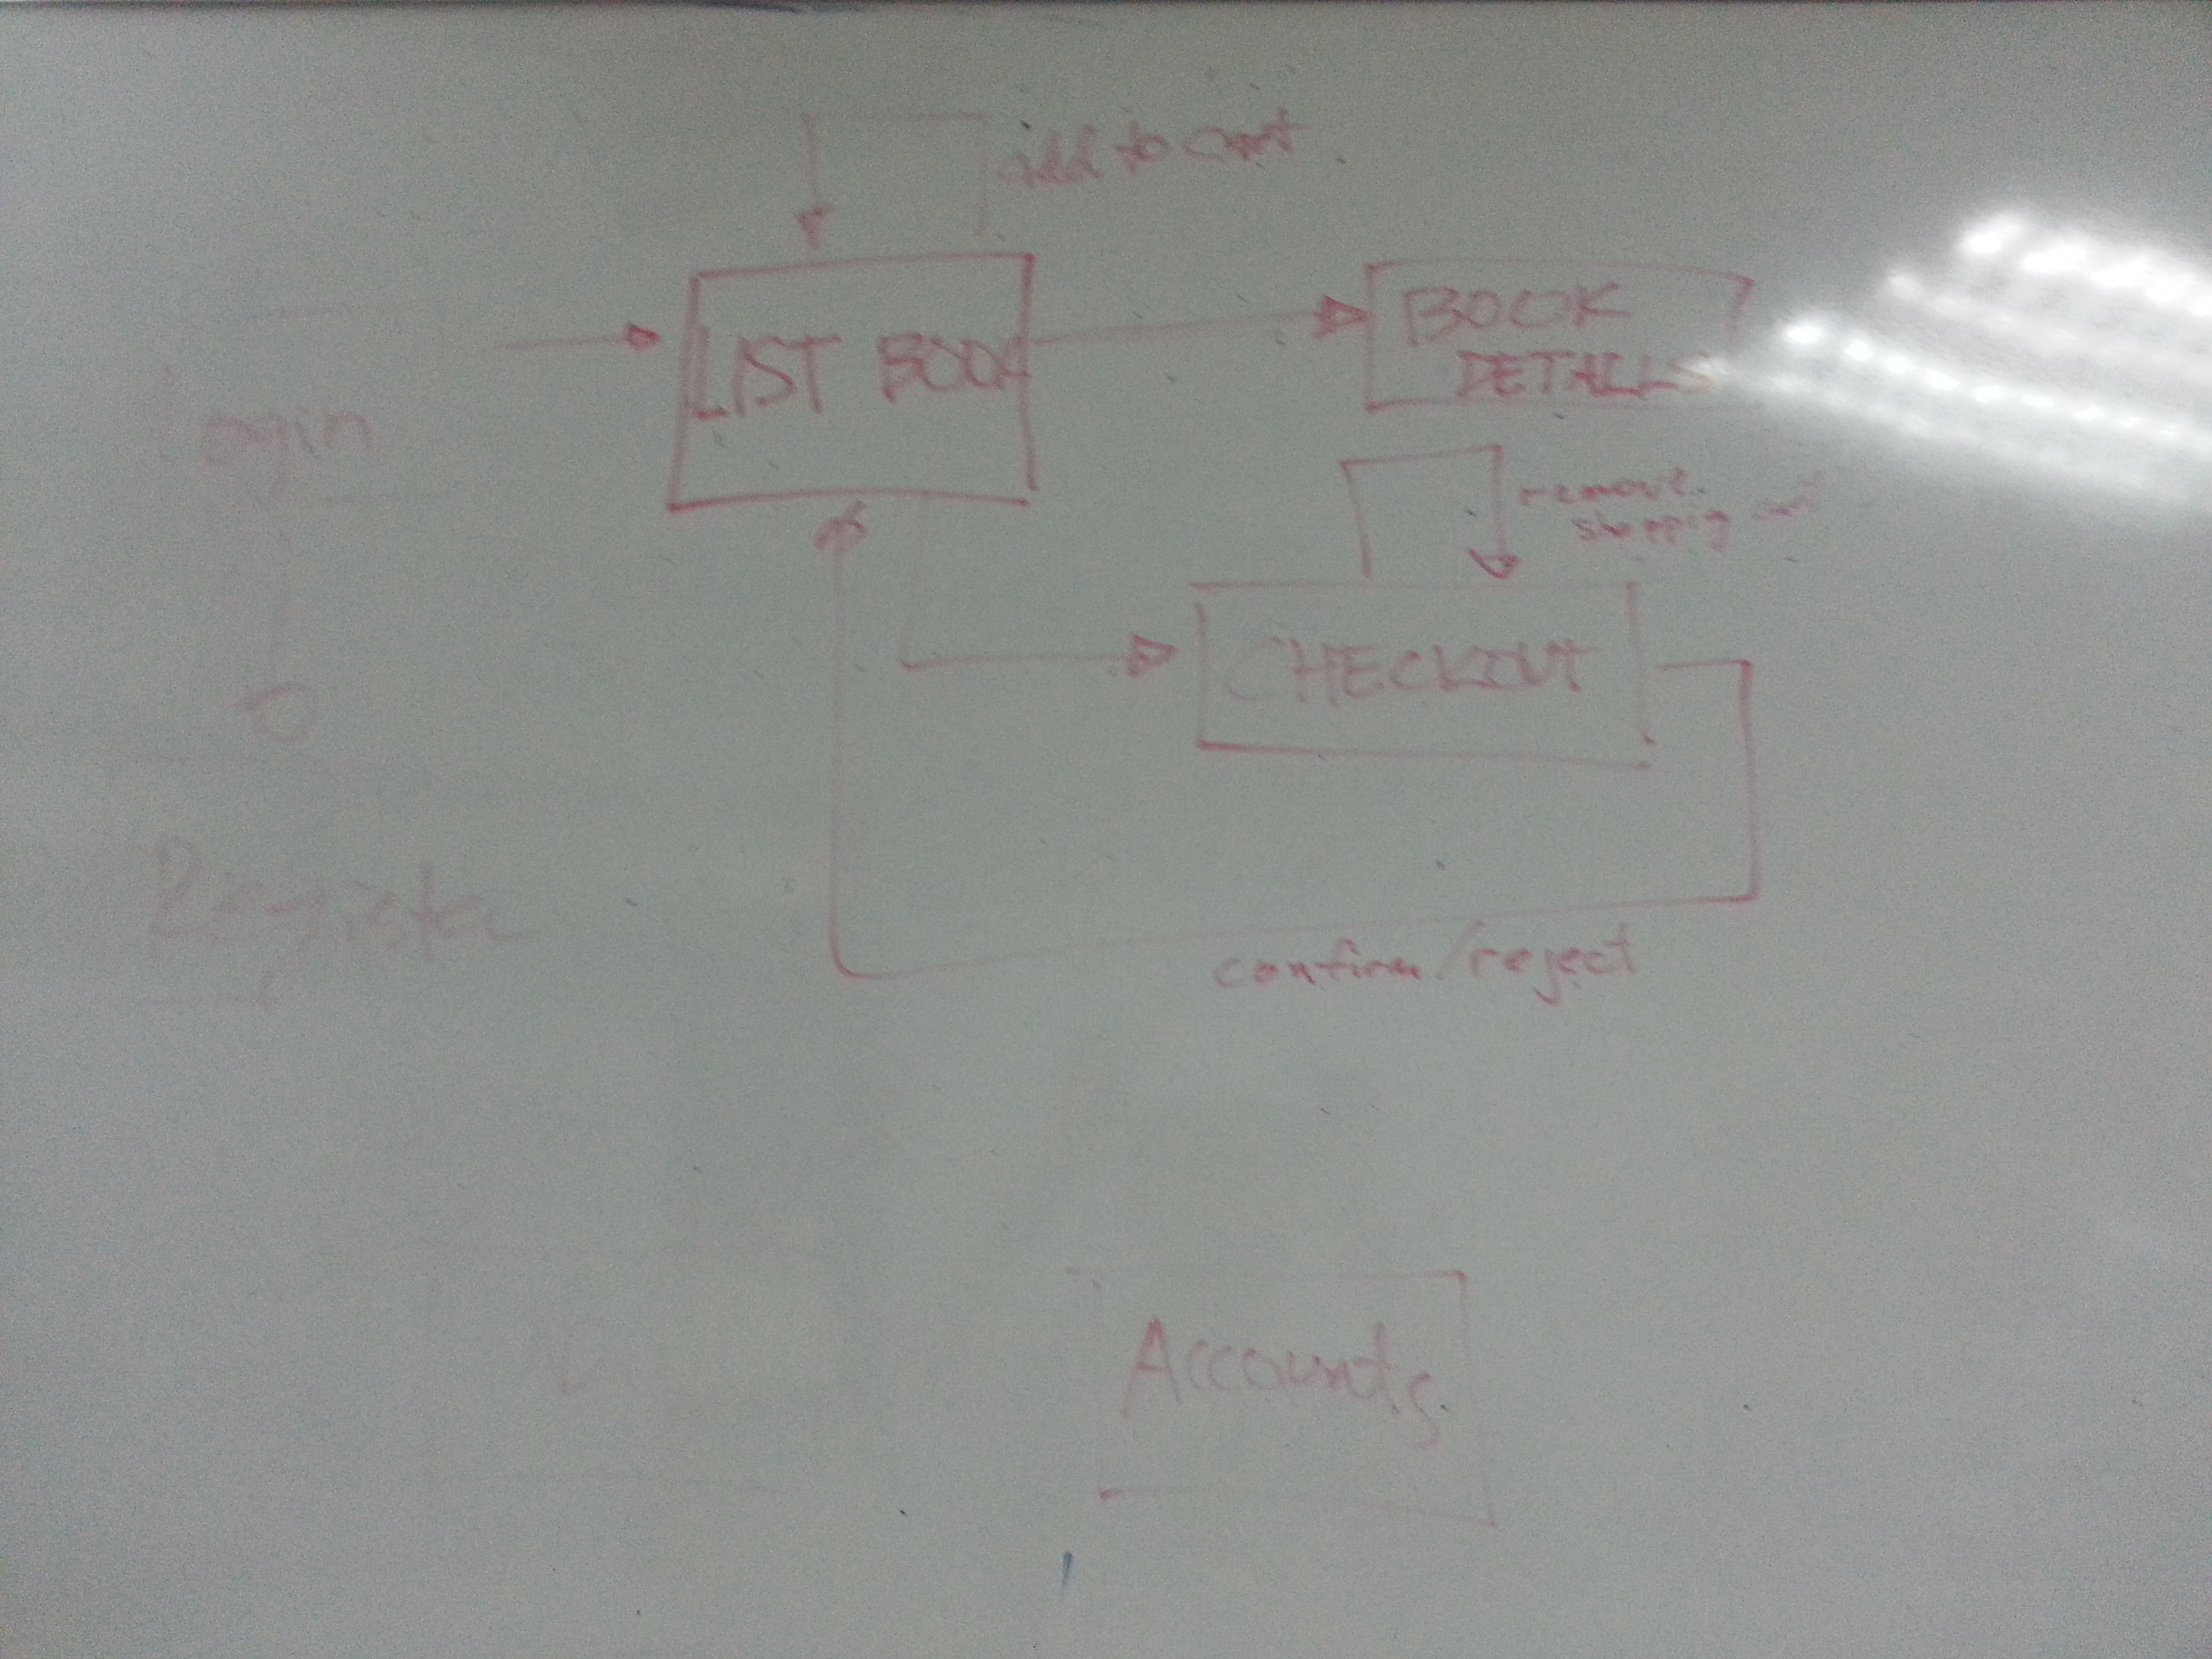 add to cart
LIST BOOK
BOOK
DETAILS
Login
remove
shopping cart
CHECKOUT
Register
confirm/reject
Accounts